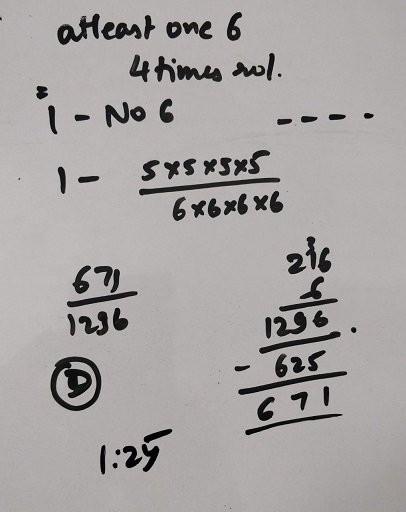 atleast one 6
4 times rol.
= 1 - No 6 ----
1 - 5×5×5×5 / 6×6×6×6
671 / 1296
D
1:25
216
6
1296.
- 625
671